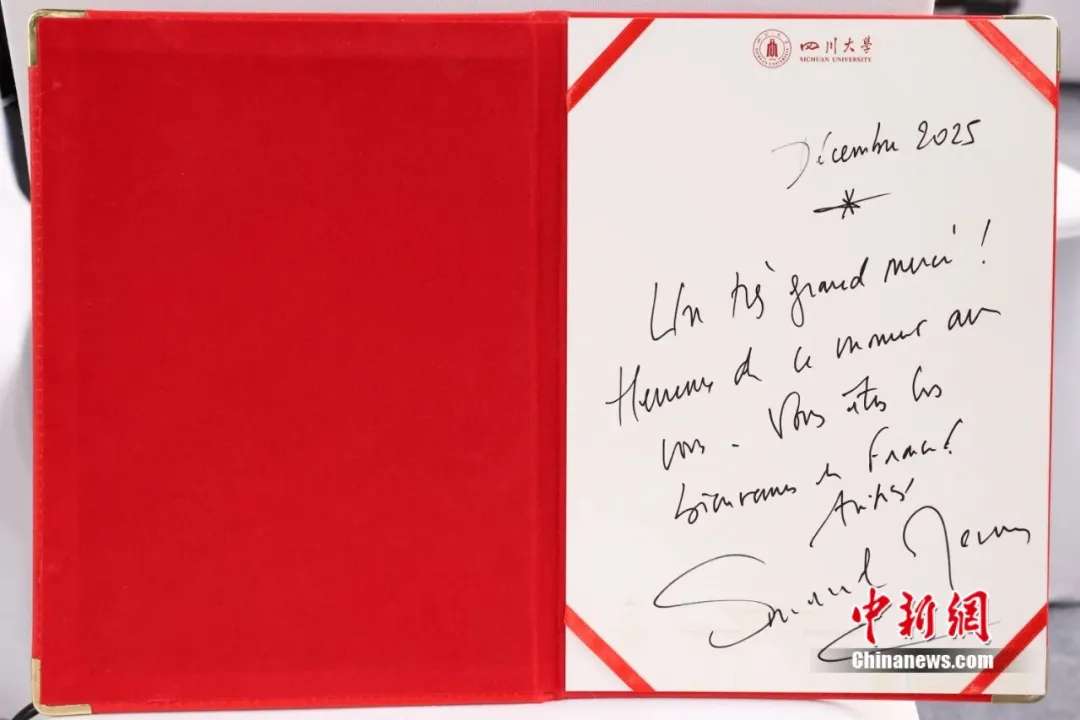 四川大学
SICHUAN UNIVERSITY
Décembre 2025
Un très grand merci !
Heureux de ce moment avec
vous. Vous êtes les
bienvenus en France !
Amitiés
中新網
Chinanews.com